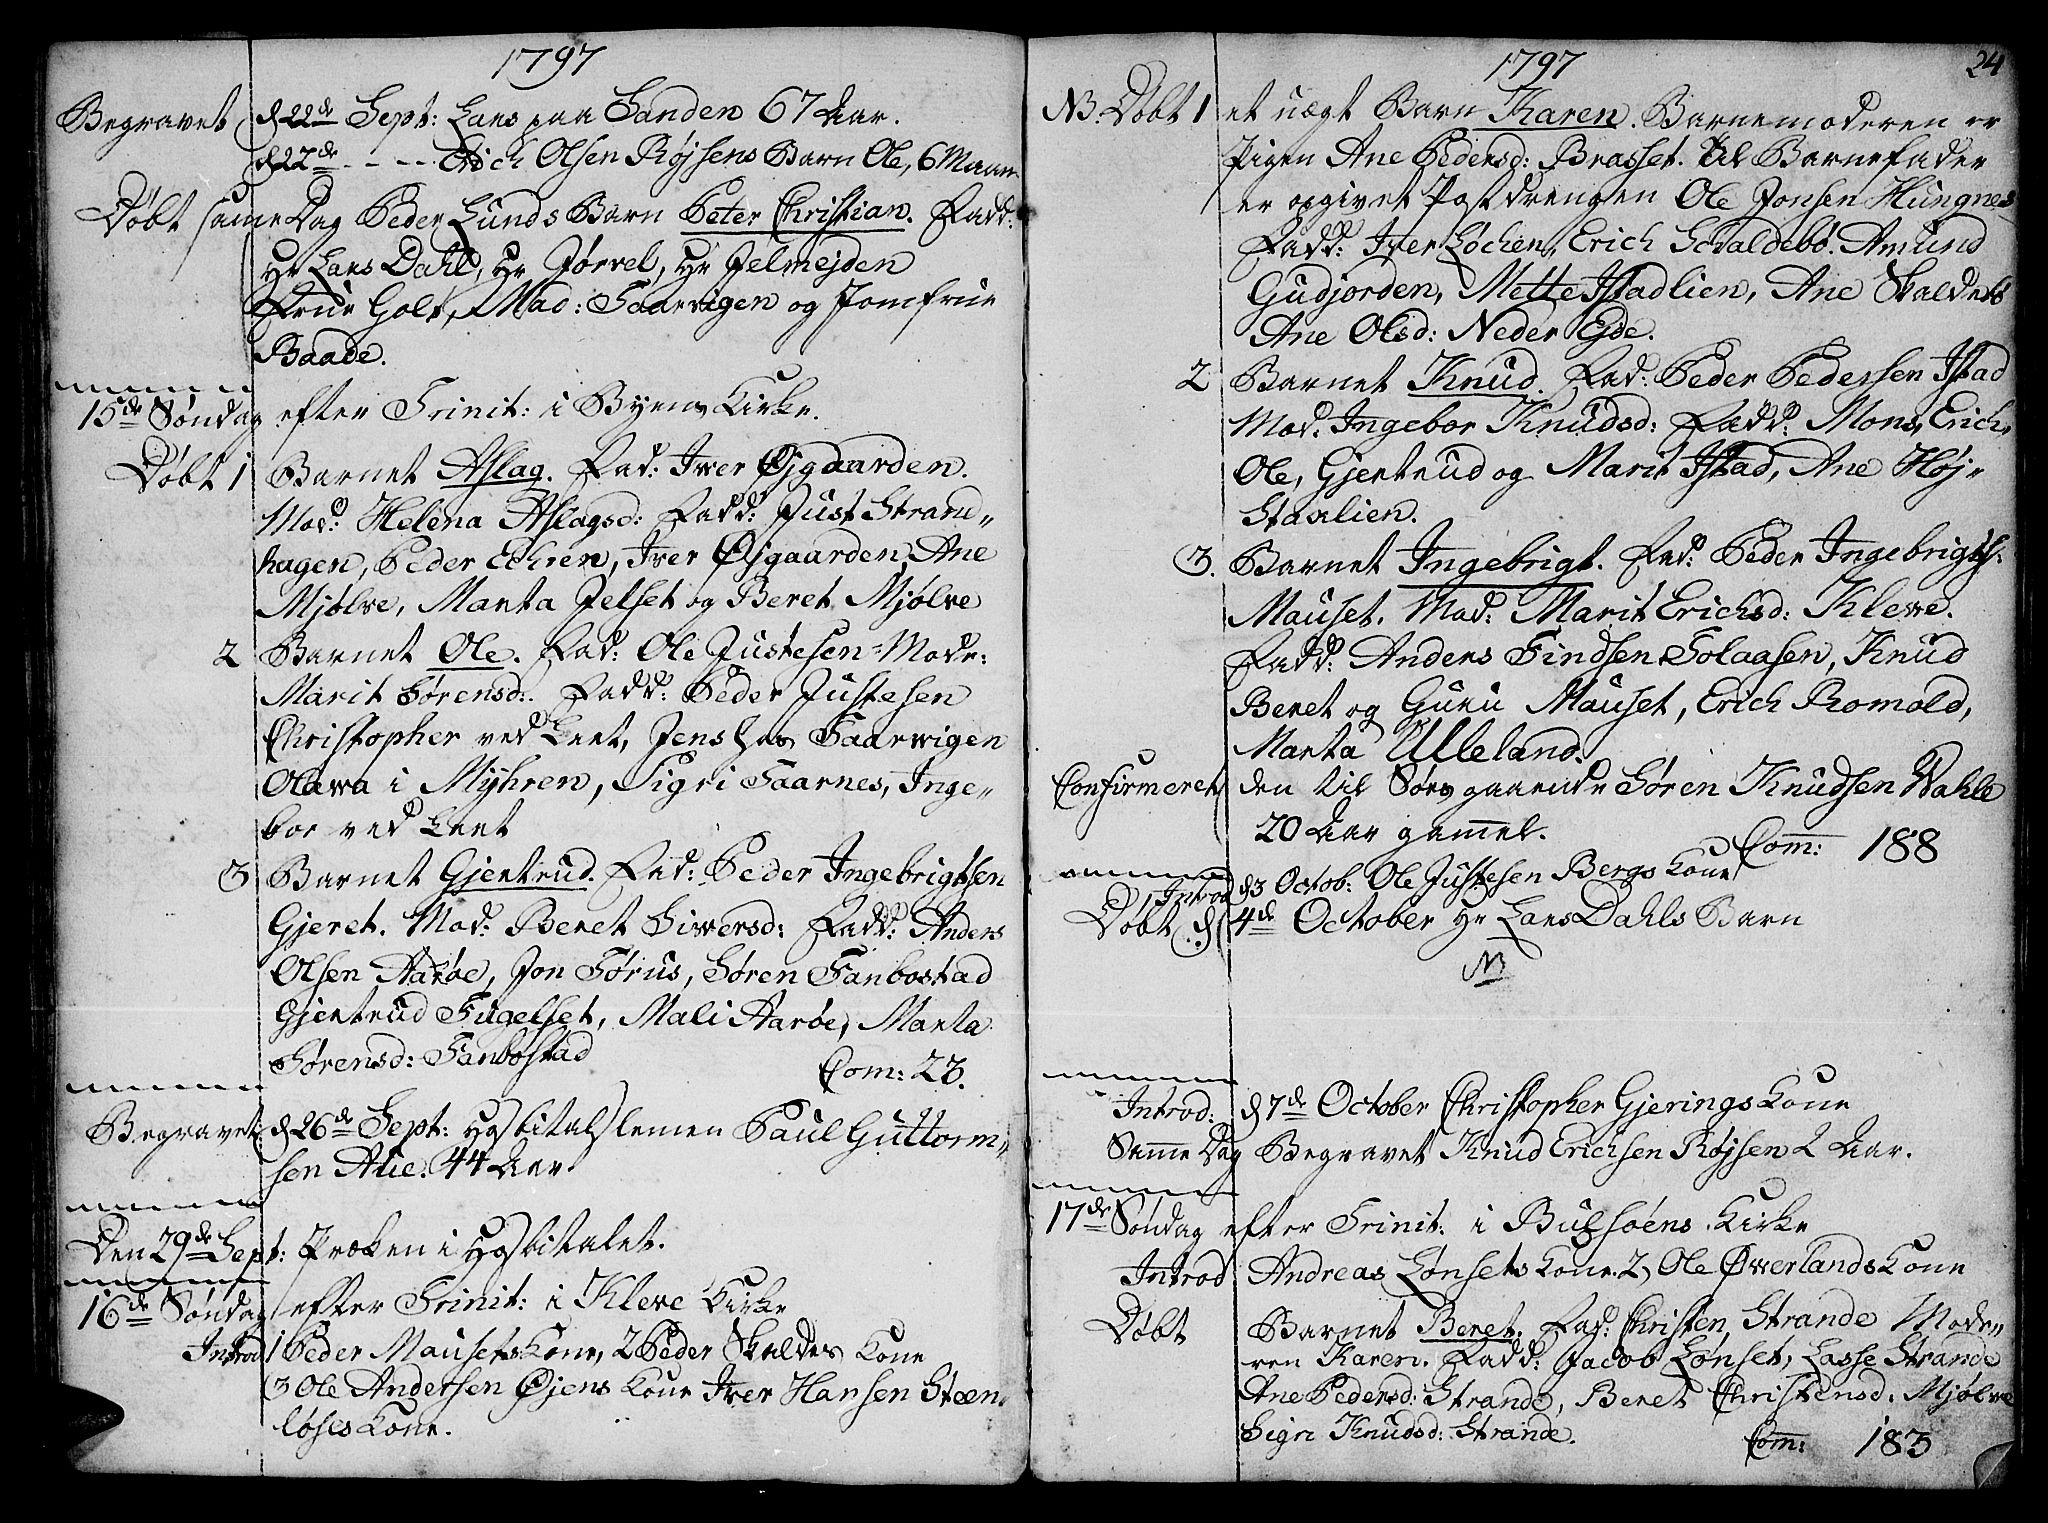 1797
Begravet d 22de Sept: Lars paa Sanden 67 Aar.
d 22de - - - Erich Olsen Røjsens Barn Ole, 6 Maan
Døbt samme Dag Peder Lunds Barn Peter Christian. Fadd:
Hr Lars Dahl, Hr Jørvel, Hr Jelmejden
Frue Holt, Mad: Faarvigen og Jomfrue
Baade.
15de Søndag efter Trinit: i Byens Kirke.
Døbt 1 Barnet Aslag. Fad: Iver Øjgaarden.
Mod: Helena Aslagsd: Fadd: Just Strand„
hagen, Peder Echren, Iver Øjgaarden, Ane
Mjølve, Marta Jelset og Beret Mjølve
2 Barnet Ole. Fad: Ole Justesen Mode:
Marit Sørensd:. Fadd: Peder Justesen
Christopher ved Leet, Jens hos Faarwigen
Olawa i Myhren, Sigri Faarnes, Inge„
bor ved Leet
3 Barnet Gjertrud. Fad: Peder Ingebrigtsen
Gjeret. Mod: Beret Siwersd: Fadd: Anders
Olsen Aarøe, Jon Førus, Søren Fanbostad
Gjertrud Fugelset, Mali Aarøe, Marta
Sørensd: Fanbostad
Com: 23.
Begravet d 26de Sept: Hospitalslemen Paul Guttorm„
sen Aue. 44 Aar
Den 29de Sept: Præken i Hospitalet.
16de Søndag efter Trinit: i Kleve Kirke
Introd 1 Peder Mausets Kone, 2 Peder Skaldes Kone
3 Ole Andersen Øjens Kone Iver Hansen Steen„
løses Kone.
1797 24
NB. Døbt 1 et uægt Barn Karen. Barnemoderen er
Pigen Ane Pedersd: Brasset. til Barnefader
er opgivet Postdrengen Ole Jonsen Hungnes
Fadd: Iver Løchen, Erich Schaldebø. Amund
Gudjorden, Mette Istadlien, Ane Skaldebø
Ane Olsd: Neder Ejde.
2 Barnet Knud. Fad: Peder Pedersen Istad
Mod. Ingebor Knudsd: Fadd: Mons, Erich,
Ole, Gjertrud og Marit Istad, Ane Høj„
Staxlien.
3. Barnet Ingebrigt. Fad: Peder Ingebrigts:
Mauset. Mod: Marit Erichsd: Kleve.
Fadd: Anders Findsen Solaasen, Knud
Beret og Guru Mauset, Erich Romold,
Marta Ulleland.
Confirmeret den til Søes gaaende Søren Knudsen Wahle
20 Aar gammel.
Com: 188
Introd d 3 Octob: Ole Justesen Bergs Kone
Døbt d 4de October Hr Lars Dahls Barn
NB
Introd: d 7de October Christopher Gjerings Kone
Samme Dag Begravet Knud Erichsen Røjsen 2 Aar.
17de Søndag efter Trinit: i Bulsøens Kirke
Introd Andreas Lønsets Kone. 2, Ole Øwerlands Kone
Døbt Barnet Beret. Fad: Christen Strande Mode„
ren Karen. Fadd: Jacob Lønset, Lasse Strande
Ane Pedersd: Strande, Beret Christensd: Mjølve
Sigri Knudsd: Strande.
Com: 183